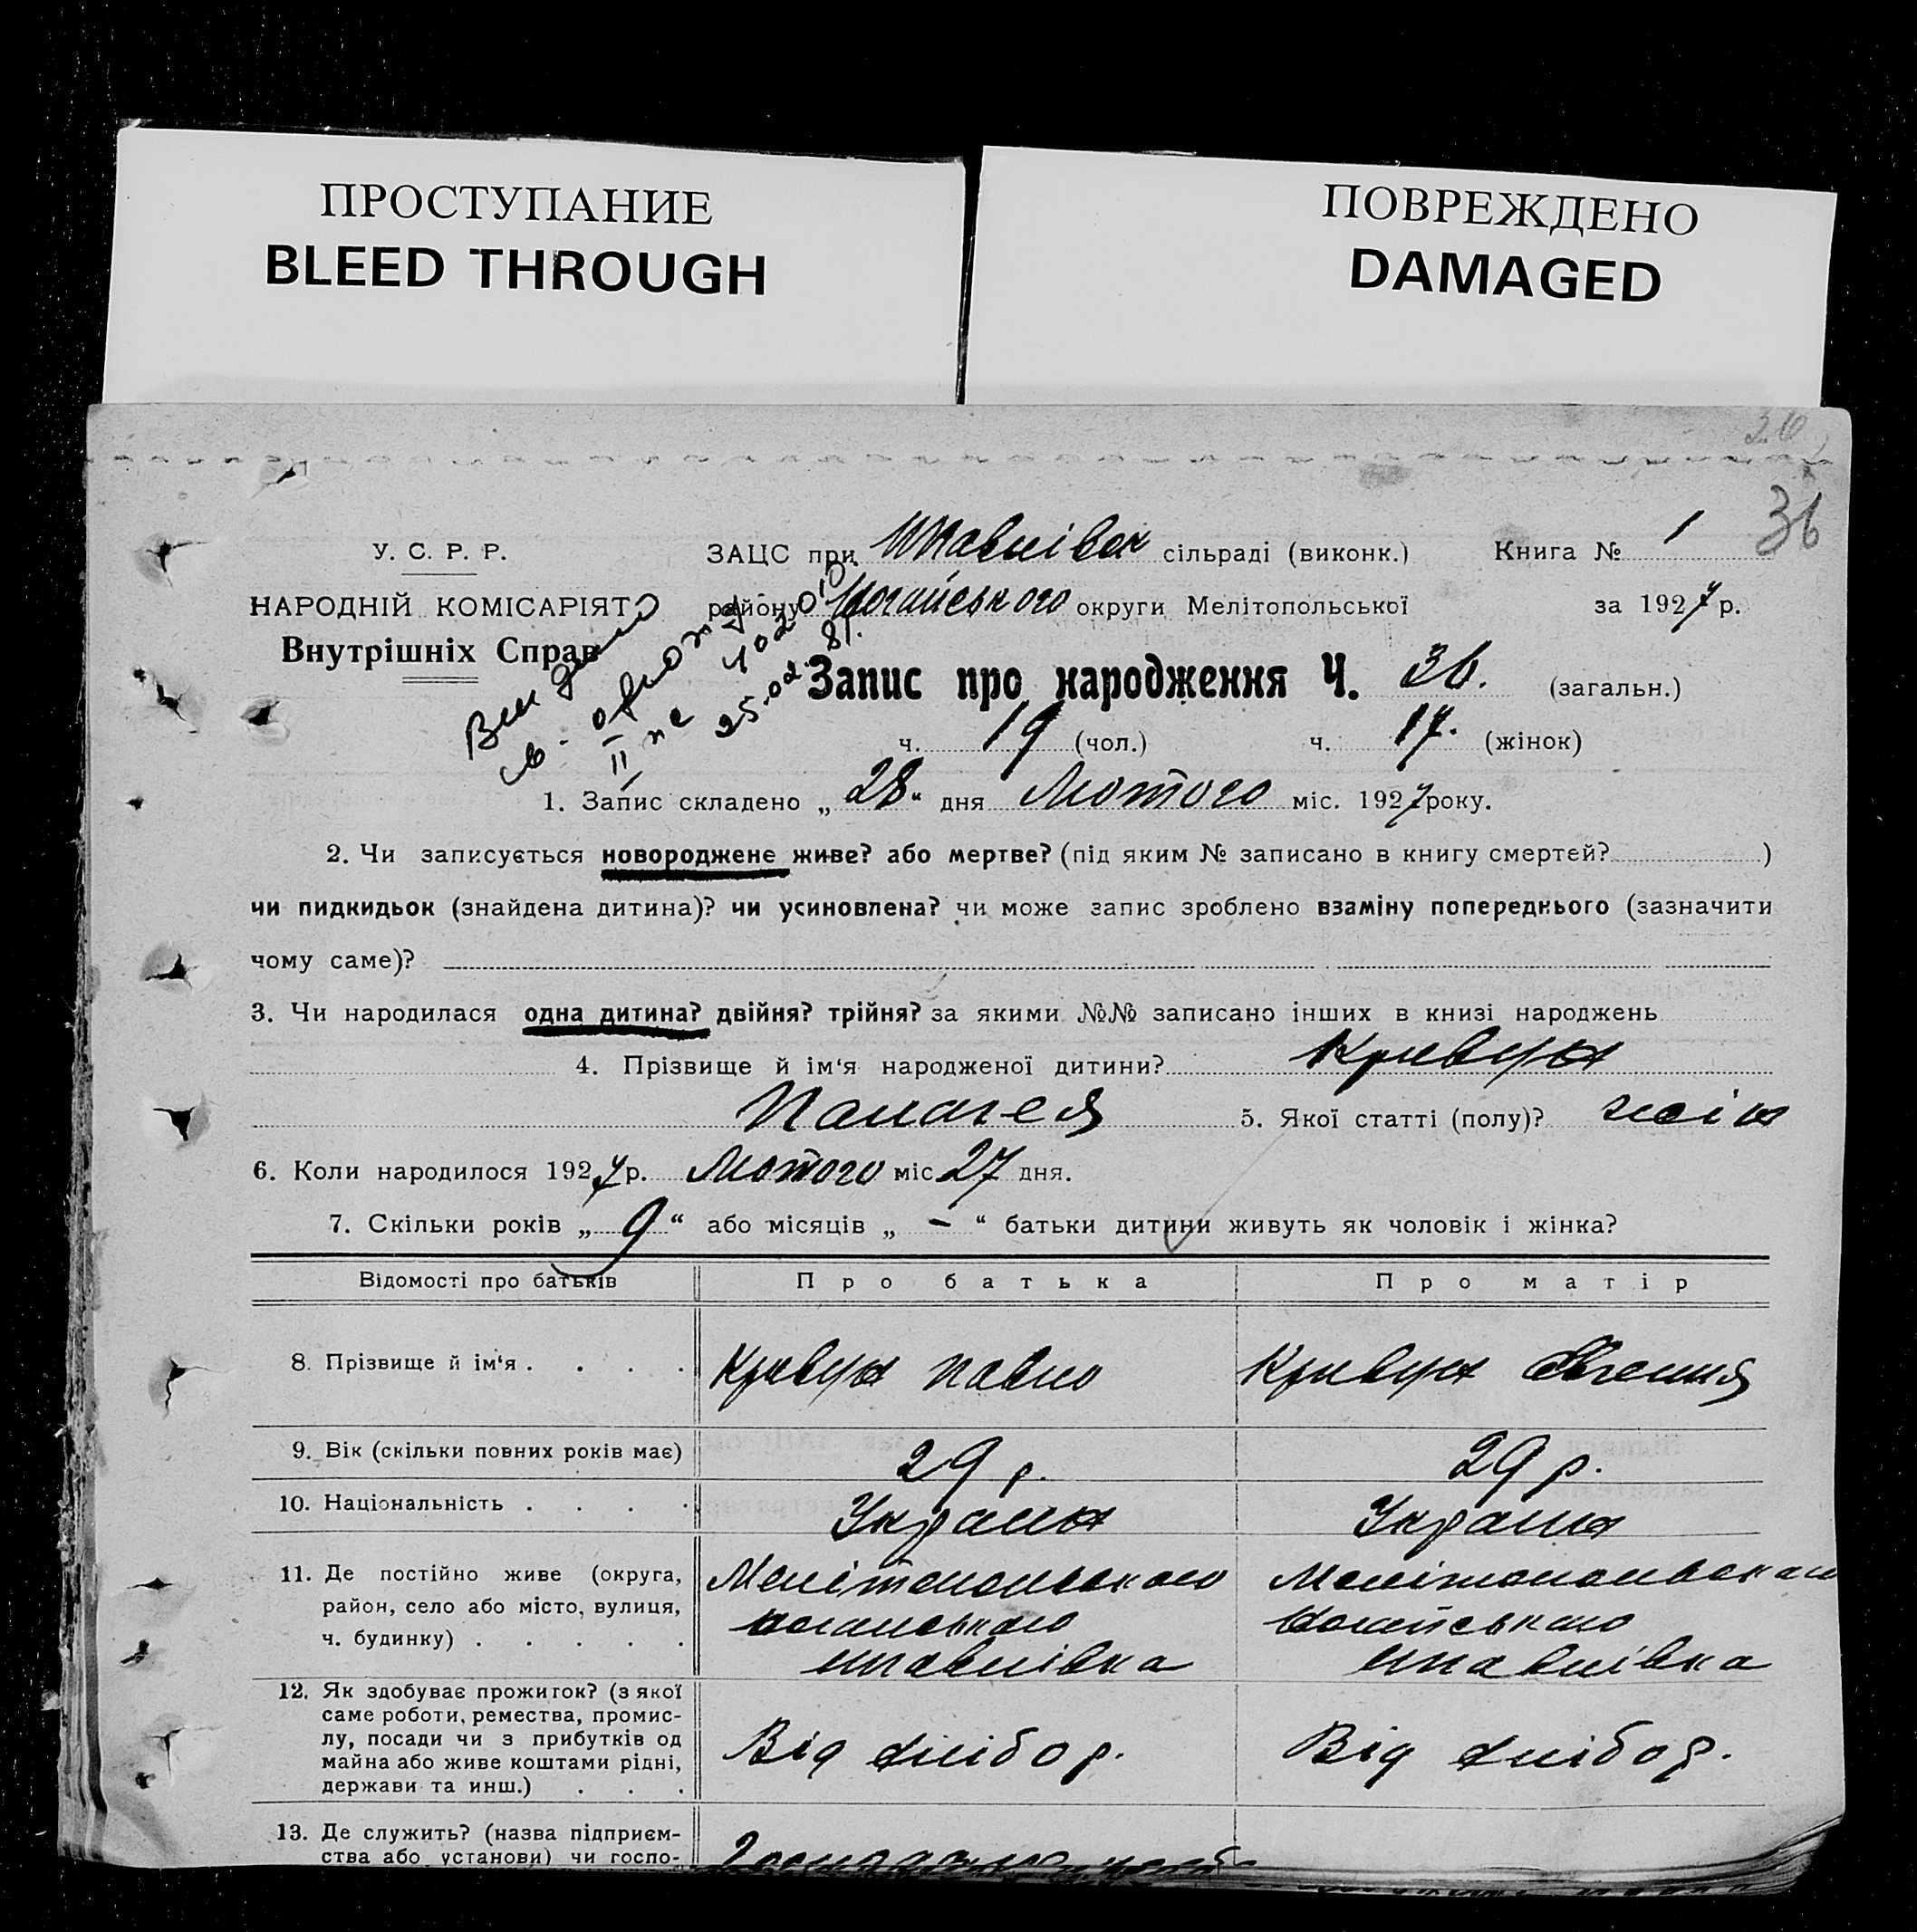 ПРОСТУПАНИЕ
BLEED THROUGH
ПОВРЕЖДЕНО
DAMAGED
36
У. С. Р. Р.
НАРОДНІЙ КОМІСАРІЯТ
Внутрішніх Справ
ЗАЦС при сільраді (виконк.) Книга № 1
району Ногайського округи Мелітопольської за 1927 р.
Видано
св-
II
25.02.81.
Запис про народження Ч. 36. (загальн.)
ч. 19 (чол.) ч. 17. (жінок)
1. Запис складено „28“ дня Лютого міс. 1927 року.
2. Чи записується новороджене живе? або мертве? (під яким № записано в книгу смертей? )
чи пидкидьок (знайдена дитина)? чи усиновлена? чи може запис зроблено взаміну попереднього (зазначити
чому саме)?
3. Чи народилася одна дитина? двійня? трійня? за якими №№ записано інших в книзі народжень
4. Прізвище й ім‘я народженої дитини? Кривуца
Панагея 5. Якої статті (полу)? жін
6. Коли народилося 1927 р. Лютого міс 27 дня.
7. Скільки років „9“ або місяців „ – “ батьки дитини живуть як чоловік і жінка?
Відомості про батьків Про батька Про матір
8. Прізвище й ім‘я Кривуца Павло Кривуца Євгения
9. Вік (скільки повних років має) 29 р. 29 р.
10. Національність Украина Украина
11. Де постійно живе (округа, Мелітопольського Мелітопольського
район, село або місто, вулиця, Ногайського Ногайського
ч. будинку)
12. Як здобуває прожиток? (з якої
саме роботи, ремества, промис-
лу, посади чи з прибутків од Від хлібор. Від хлібор.
майна або живе коштами рідні,
держави та инш.)
13. Де служить? (назва підприєм-
ства або установи) чи госпо-